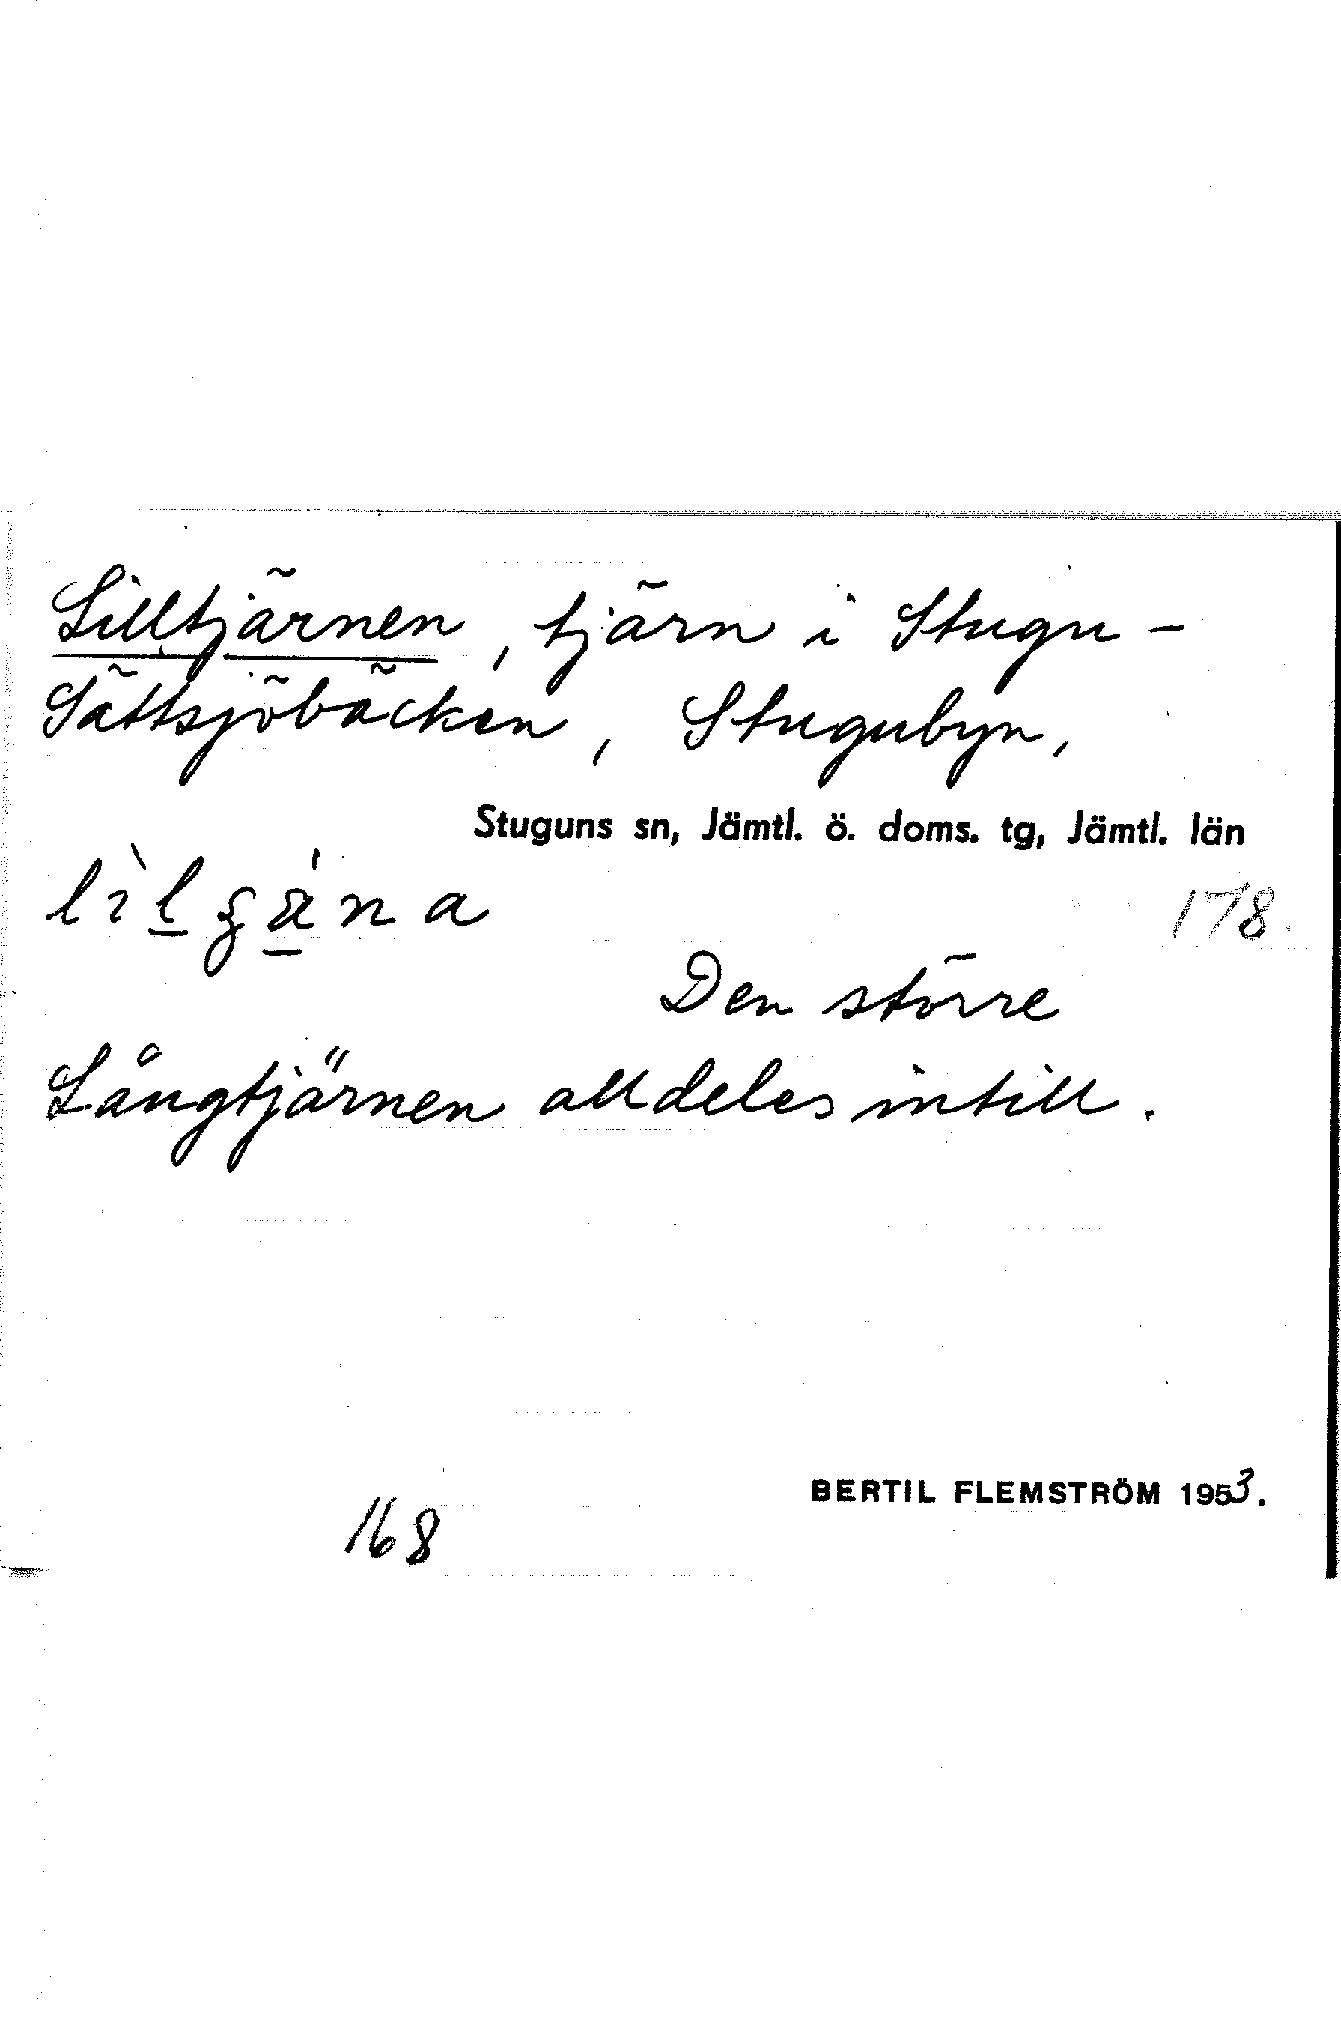 Lilltjärnen, tjärn i Stugu-
Sättsjöbäcken, Stugubyn,
Stuguns sn, Jämtl. ö. doms. tg, Jämtl. län
178
Den större
Långtjärnen alldeles intill.
BERTIL FLEMSTRÖM 1953.
168